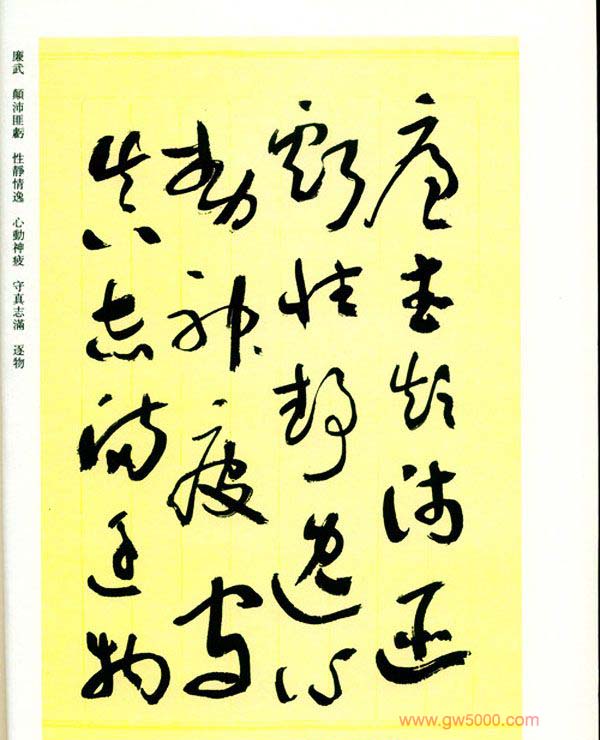 廉武顛沛匪
虧性靜逸心
動神疲守
真志滿逐物
廉武　顛沛匪虧　性靜情逸　心動神疲　守真志滿　逐物
www.gw5000.com